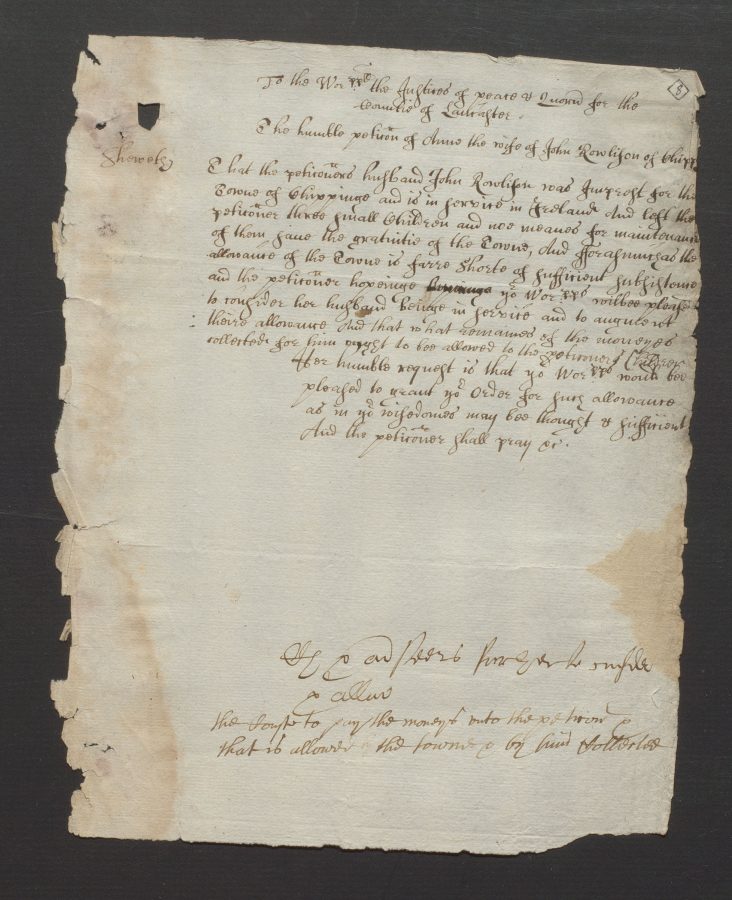 8
To the Wor:pps the Justices of peace & Quoru for the
Countie of Lancaster.
The humble peticon of Anne the wife of John Rowlison of Chipp
Sheweth
That the peticoners husband John Rowlison was Imprest for the
Towne of Chippinge and is in service in Ireland And left the
peticoner three small Children and noe meanes for maintenance
of them save the gratuitie of the Towne, And fforasmuch as the
allowance of the Towne is farre Shorte of sufficient subsistance
and the peticoner hopeinge yor Wor:pps wilbee pleased
to consider her husband beinge in service and to augment
theire allowance And that what remaines of the moneyes
collected for him ought to bee allowed to the peticoners Children
Her humble request is that yor Wor:pps would bee
pleased to grant yor Order for such allowance
as in yor wisedomes may bee thought & sufficient
And the peticoner shall pray &c.
to
allow
the to pay the moneys unto the peticon
that is allowed the towne by him Collected